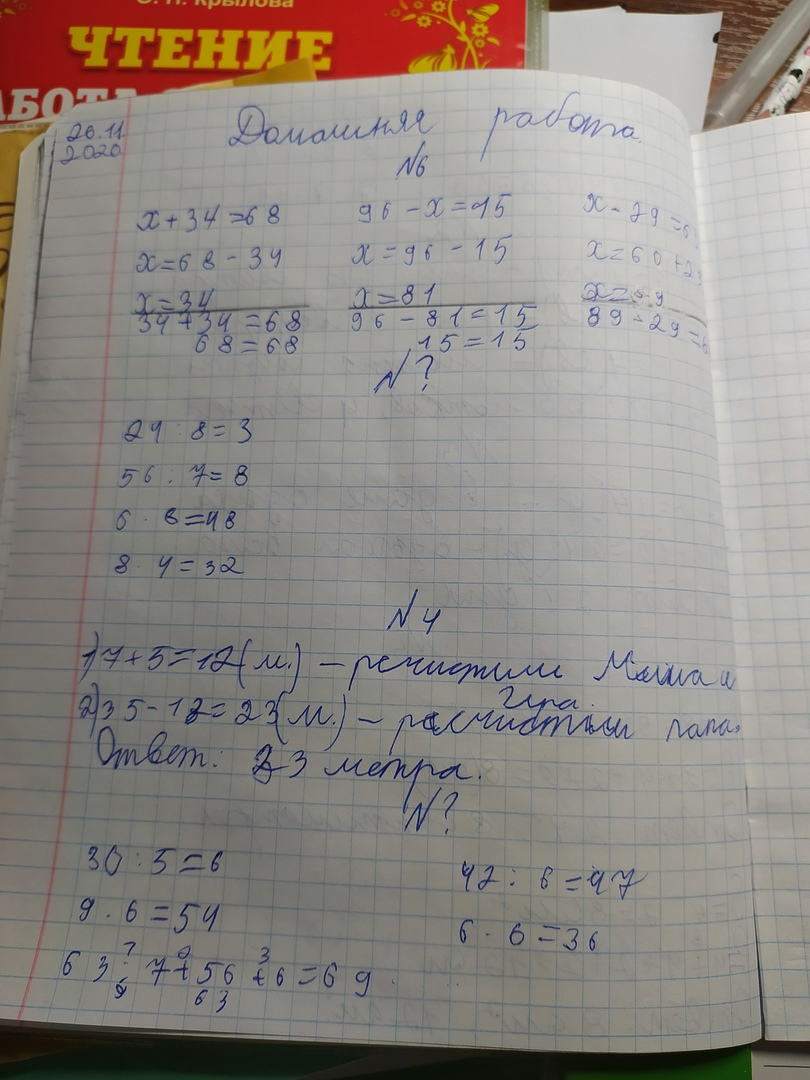 О. Н. Крылова
ЧТЕНИЕ
26.11
2020
Домашняя работа.
№6
x+34=68 96-x=15 x-29=6
x=68-34 x=96-15 x=60+2
x=34 x=81
34+34=68 96-81=15 89-29=6
68=68 15=15
№?
24:8=3
56:7=8
6·8=48
8·4=32
№4
1)7+5=12(м.) – речистили Маша и
2)35-12=23(м.) – расчистил папа.
Ответ: 23 метра.
№?
30:5=6 42:6=47
9·6=54 6·6=36
63:7+56+6=69
9 63